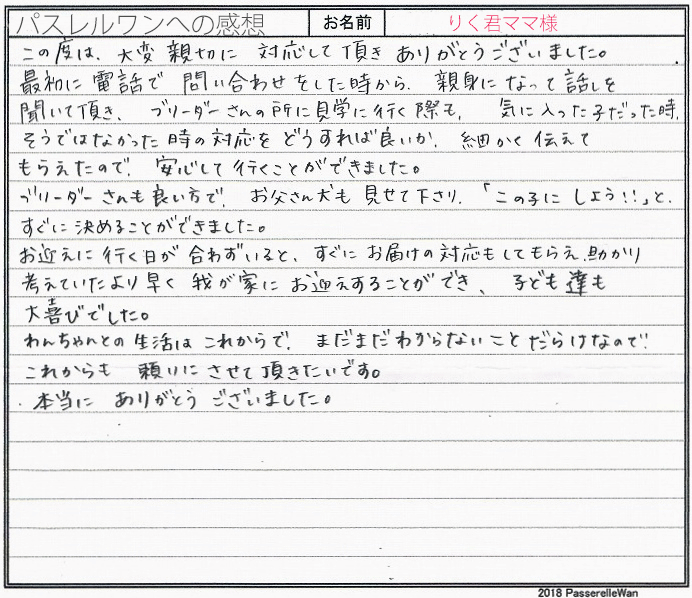 パスレルワンへの感想 お名前 りく君ママ様
この度は、大変親切に対応して頂きありがとうございました。
最初に電話で問い合わせをした時から、親身になって話しを
聞いて頂き、ブリーダーさんの所に見学に行く際も、気に入った子だった時、
そうではなかった時の対応をどうすれば良いか、細かく伝えて
もらえたので、安心して行くことができました。
ブリーダーさんも良い方で、お父さん犬も見せて下さり、「この子にしよう!!」と、
すぐに決めることができました。
お迎えに行く日が合わずいると、すぐにお届けの対応もしてもらえ、助かり
考えていたより早く我が家にお迎えすることができ、子ども達も
大喜びでした。
わんちゃんとの生活はこれからで、まだまだわからないことだらけなので、
これからも頼りにさせて頂きたいです。
本当にありがとうございました。
2018 PasserelleWan